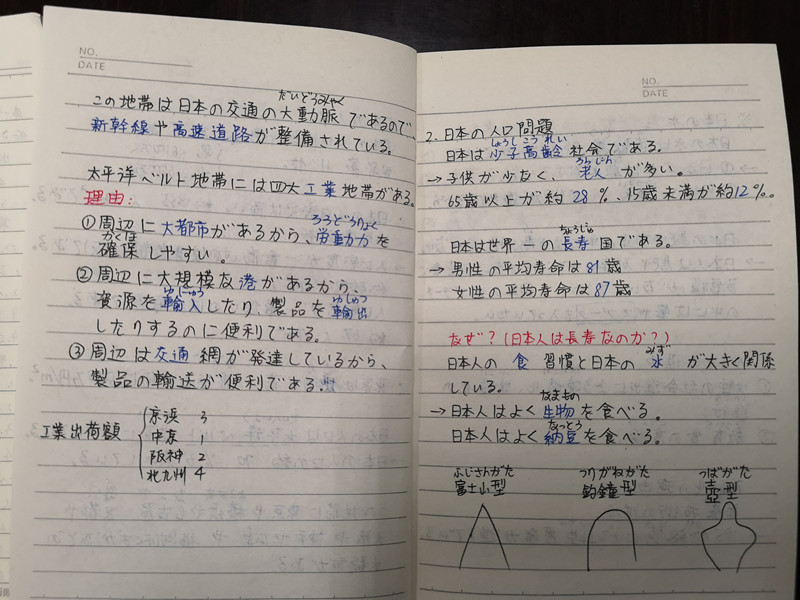 NO.
DATE
だいどうみゃく
この地帯は日本の交通の大動脈であるので、
新幹線や高速道路が整備されている。
太平洋ベルト地帯には四大工業地帯がある。
理由:
ろうどうりょく
①周辺に大都市があるから、労働力を
かくほ
確保しやすい。
②周辺に大規模な港があるから、
ゆにゅう ゆしゅつ
資源を輸入したり、製品を輸出
したりするのに便利である。
③周辺は交通網が発達しているから、
製品の輸送が便利である。
工業出荷額
京浜 3
中京 1
阪神 2
北九州 4
NO.
DATE
2.日本の人口問題
しょうしこうれい
日本は少子高齢社会である。
ろうじん
→子供が少なく、老人が多い。
65歳以上が約28%、15歳未満が約12%。
ちょうじゅ
日本は世界一の長寿国である。
→男性の平均寿命は81歳
女性の平均寿命は87歳
なぜ?(日本人は長寿なのか?)
みず
日本人の食習慣と日本の水が大きく関係
している。
なまもの
→日本人はよく生物を食べる。
なっとう
日本人はよく納豆を食べる。
ふじさんがた つりがねがた つぼがた
富士山型 釣鐘型 壺型